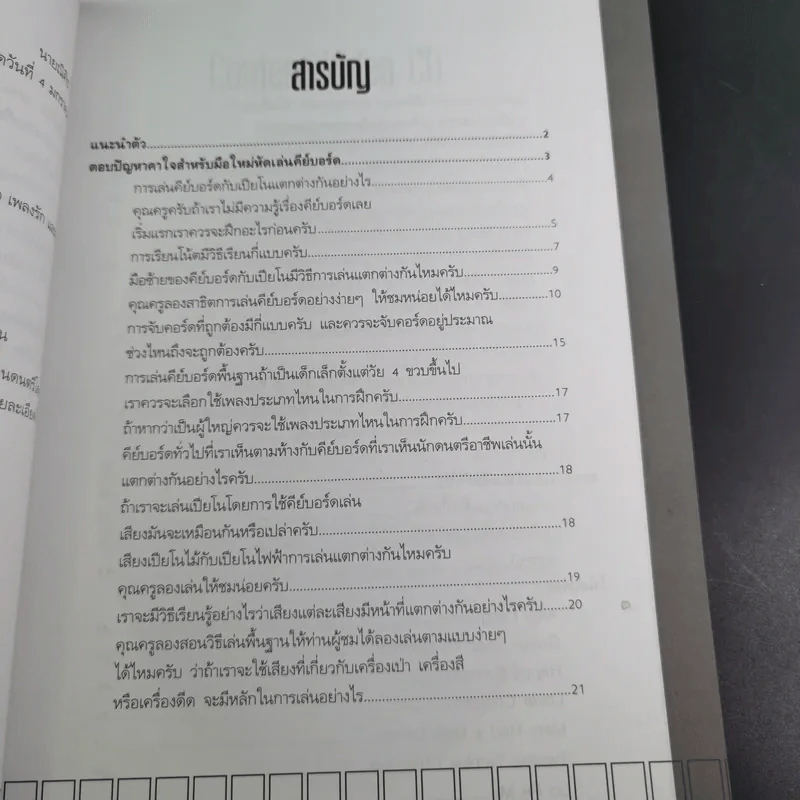 นายณ
ดวันที่ 4 มกรา
เพลงรัก และ
น
นดนตรีส
ยละเอียด
สารบัญ
แนะนำตัว....................2
ตอบปัญหาคาใจสำหรับมือใหม่หัดเล่นคีย์บอร์ด....................3
การเล่นคีย์บอร์ดกับเปียโนแตกต่างกันอย่างไร....................4
คุณครูครับถ้าเราไม่มีความรู้เรื่องคีย์บอร์ดเลย
เริ่มแรกเราควรจะฝึกอะไรก่อนครับ....................5
การเรียนโน้ตมีวิธีเรียนกี่แบบครับ....................7
มือซ้ายของคีย์บอร์ดกับเปียโนมีวิธีการเล่นแตกต่างกันไหมครับ....................9
คุณครูลองสาธิตการเล่นคีย์บอร์ดอย่างง่ายๆ ให้ชมหน่อยได้ไหมครับ............10
การจับคอร์ดที่ถูกต้องมีกี่แบบครับ และควรจะจับคอร์ดอยู่ประมาณ
ช่วงไหนถึงจะถูกต้องครับ....................15
การเล่นคีย์บอร์ดพื้นฐานถ้าเป็นเด็กเล็กตั้งแต่วัย 4 ขวบขึ้นไป
เราควรจะเลือกใช้เพลงประเภทไหนในการฝึกครับ....................17
ถ้าหากว่าเป็นผู้ใหญ่ควรจะใช้เพลงประเภทไหนในการฝึกครับ....................17
คีย์บอร์ดทั่วไปที่เราเห็นตามห้างกับคีย์บอร์ดที่เราเห็นนักดนตรีอาชีพเล่นนั้น
แตกต่างกันอย่างไรครับ....................18
ถ้าเราจะเล่นเปียโนโดยการใช้คีย์บอร์ดเล่น
เสียงมันจะเหมือนกันหรือเปล่าครับ....................18
เสียงเปียโนไม้กับเปียโนไฟฟ้าการเล่นแตกต่างกันไหมครับ
คุณครูลองเล่นให้ชมน่อยครับ....................19
เราจะมีวิธีเรียนรู้อย่างไรว่าเสียงแต่ละเสียงมีหน้าที่แตกต่างกันอย่างไรครับ.......20
คุณครูลองสอนวิธีเล่นพื้นฐานให้ท่านผู้ชมได้ลองเล่นตามแบบง่ายๆ
ได้ไหมครับ ว่าถ้าเราจะใช้เสียงที่เกี่ยวกับเครื่องเป่า เครื่องสี
หรือเครื่องดีด จะมีหลักในการเล่นอย่างไร....................21